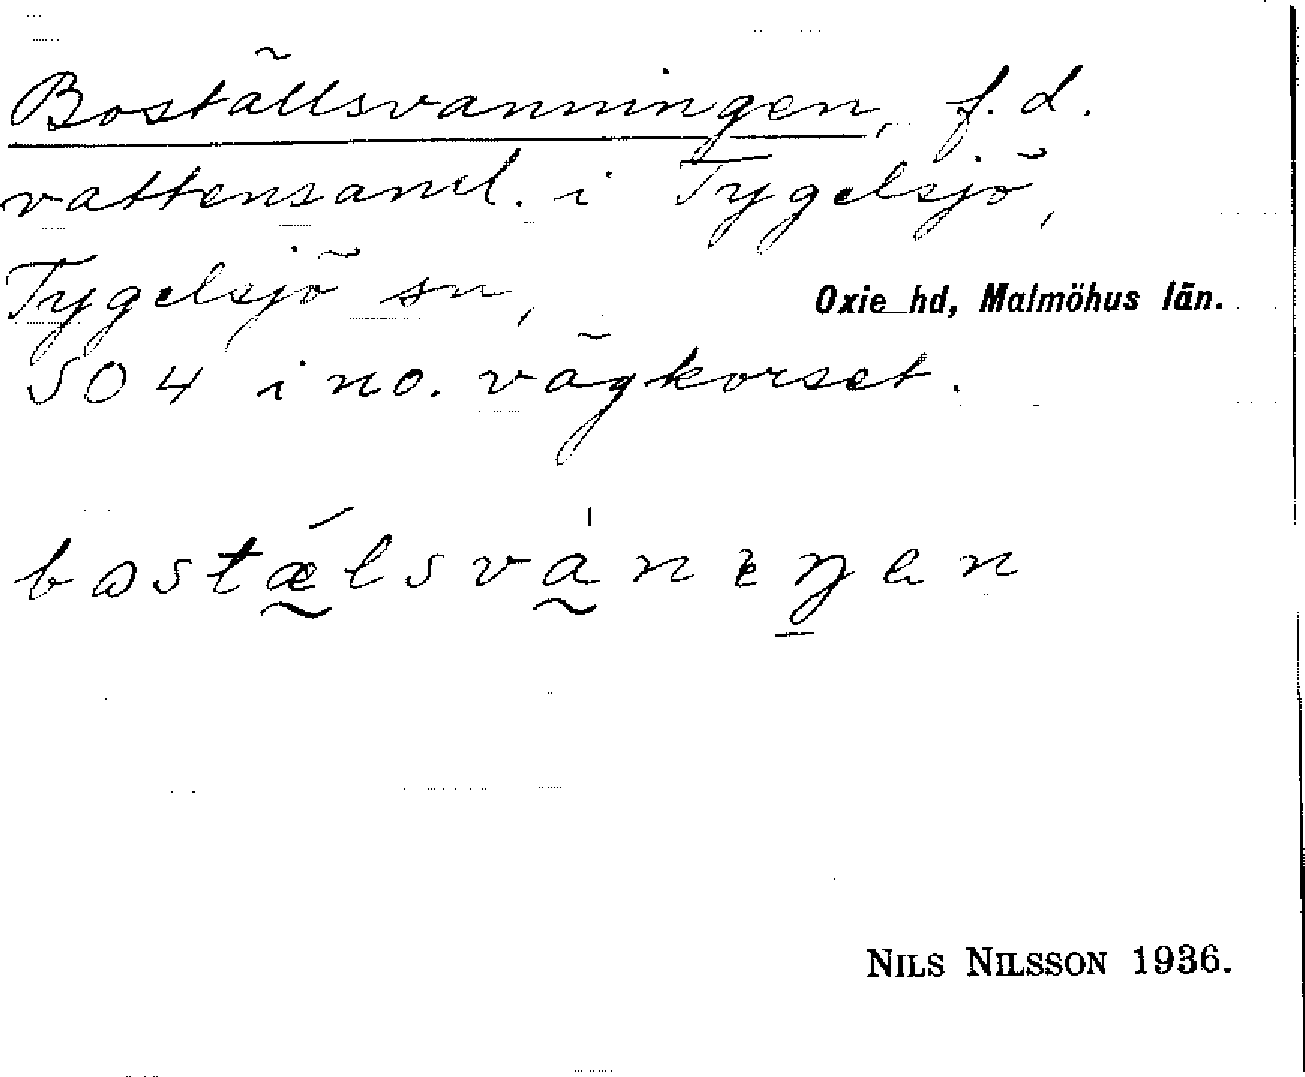 Boställsvanningen, f. d.
vattensaml. i Tygelsjö,
Tygelsjö sn, Oxie hd, Malmöhus län.
SO 4 i no. vägkorset.
bostǽlsvánɩŋen
NILS NILSSON 1936.